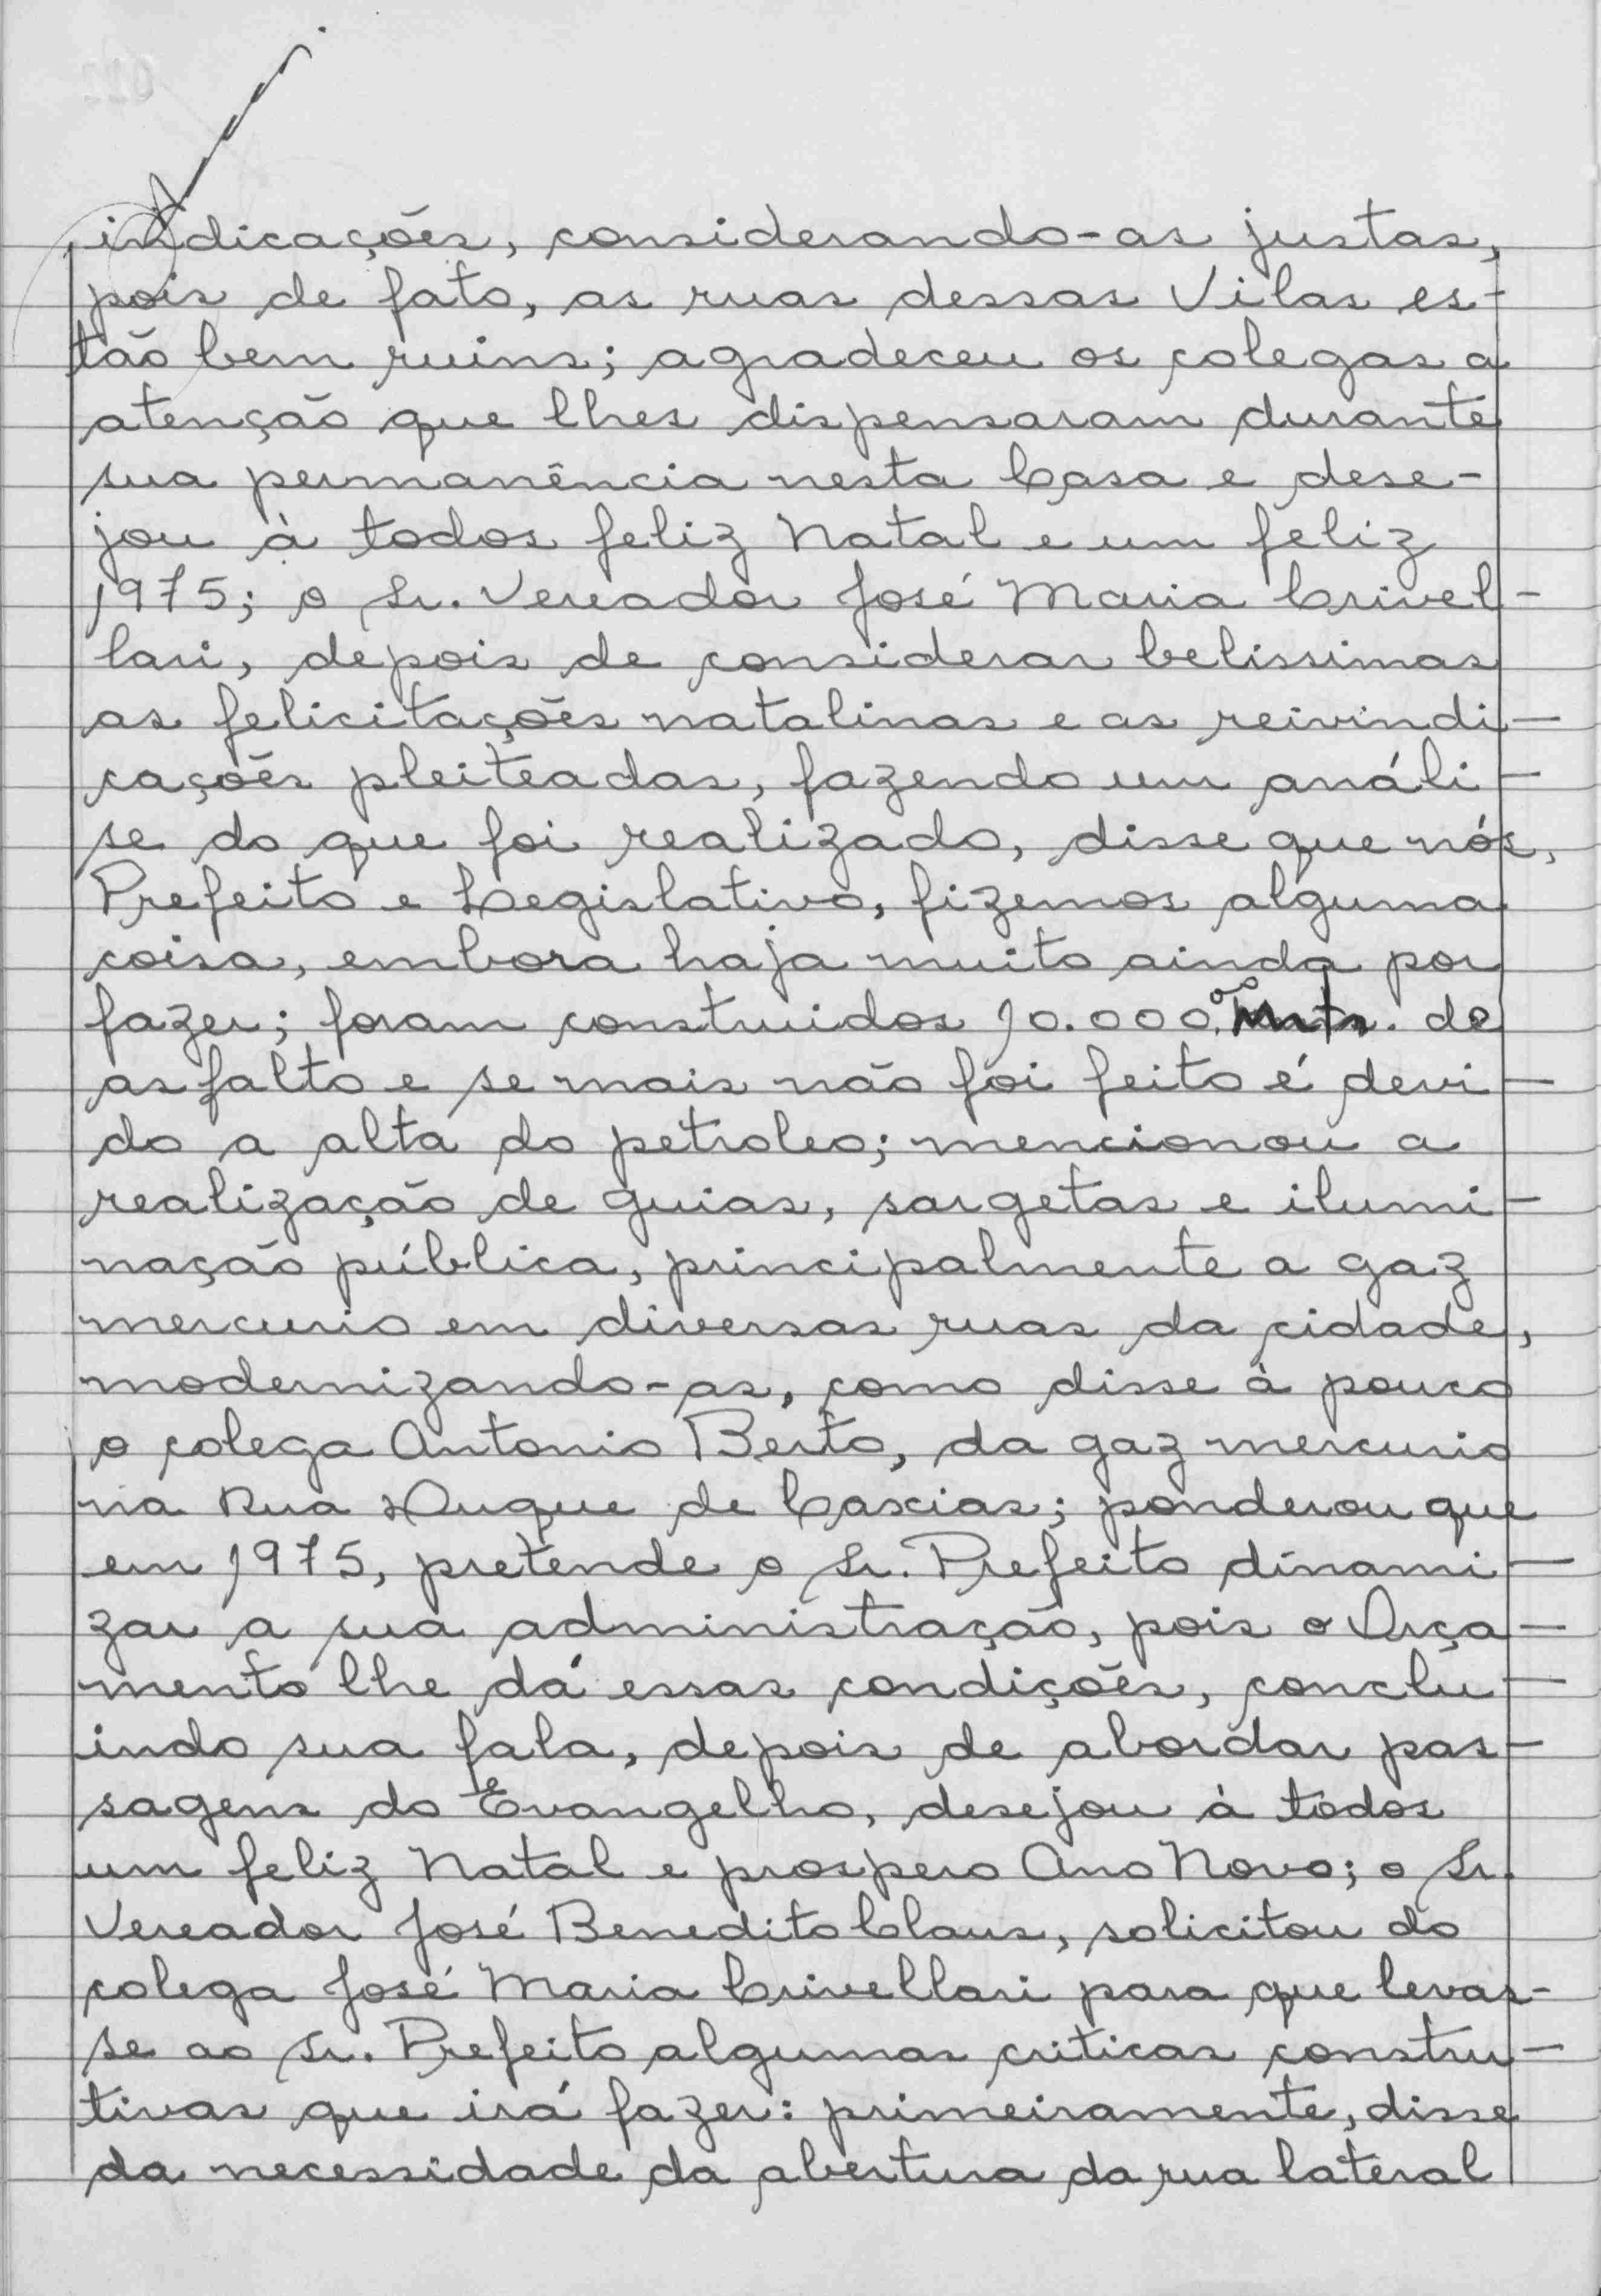 indicações, considerando-as justas,
pois de fato, as ruas dessas Vilas es-
tão bem ruins; agradeceu os colegas a
atenção que lhes dispensaram durante
sua permanência nesta Casa e dese-
jou à todos feliz Natal e um feliz
1975; o Sr. Vereador José Maria Crivel-
lari, depois de considerar belissimas
as felicitações natalinas e as reivindi-
cações pleiteadas, fazendo um análi-
se do que foi realizado, disse que nós,
Prefeito e Legislativo, fizemos alguma
coisa, embora haja muito ainda por
fazer; foram construidos 10.000,00 Mts. de
asfalto e se mais não foi feito é devi-
do a alta do petroleo; mencionou a
realização de guias, sargetas e ilumi-
nação pública, principalmente a gaz
mercurio em diversas ruas da cidade,
modernizando-as, como disse à pouco
o colega Antonio Berto, da gaz mercurio
na Rua Duque de Caxias; ponderou que
em 1975, pretende o Sr. Prefeito dinami-
zar a sua administração, pois o Orça-
mento lhe dá essas condições, conclu-
indo sua fala, depois de abordar pas-
sagens do Evangelho, desejou à todos
um feliz Natal e prospero Ano Novo; o Sr.
Vereador José Benedito Claus, solicitou do
colega José Maria Crivellari para que levas-
se ao Sr. Prefeito algumas criticas constru-
tivas que irá fazer: primeiramente, disse
da necessidade da abertura da rua lateral